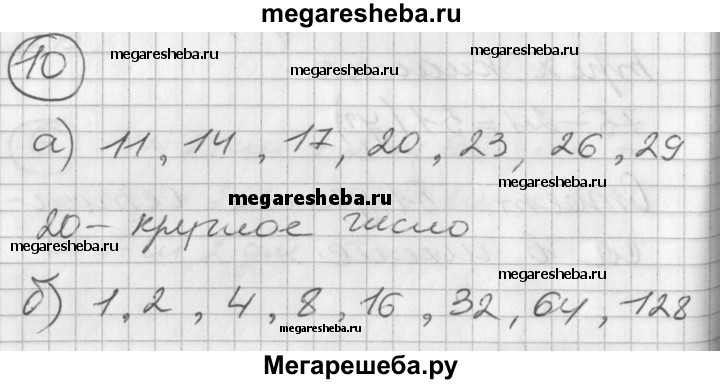 megaresheba.ru
10
megaresheba.ru
megaresheba.ru
а) 11, 14, 17, 20, 23, 26, 29
megaresheba.ru
megaresheba.ru
20 – круглое число
megaresheba.ru
megaresheba.ru
б) 1, 2, 4, 8, 16, 32, 64, 128
megaresheba.ru
Мегарешеба.ру